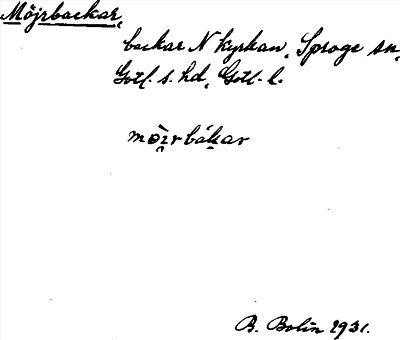 Möjrbackar,
backar N kyrkan, Sproge sn,
Gotl. s. hd, Gotl. l.
mòi̯rbákar
B. Bolin 1931.